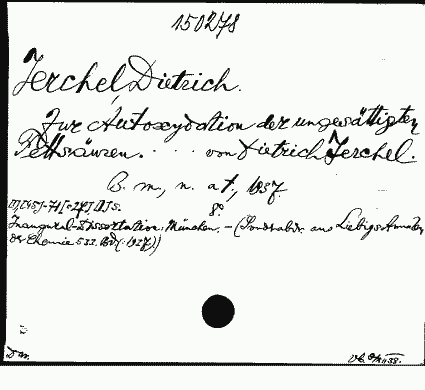 150278
Jerchel, Dietrich.
Zur Autoxydation der ungesättigten
Fettsäuren. . . . von Dietrich Jerchel.
B. m., n. a t., 1937
8°
Inaugural-Dissertation, München. – (Sonderabdr. aus Liebigs Annalen
der Chemie 532. Bd. (1937))